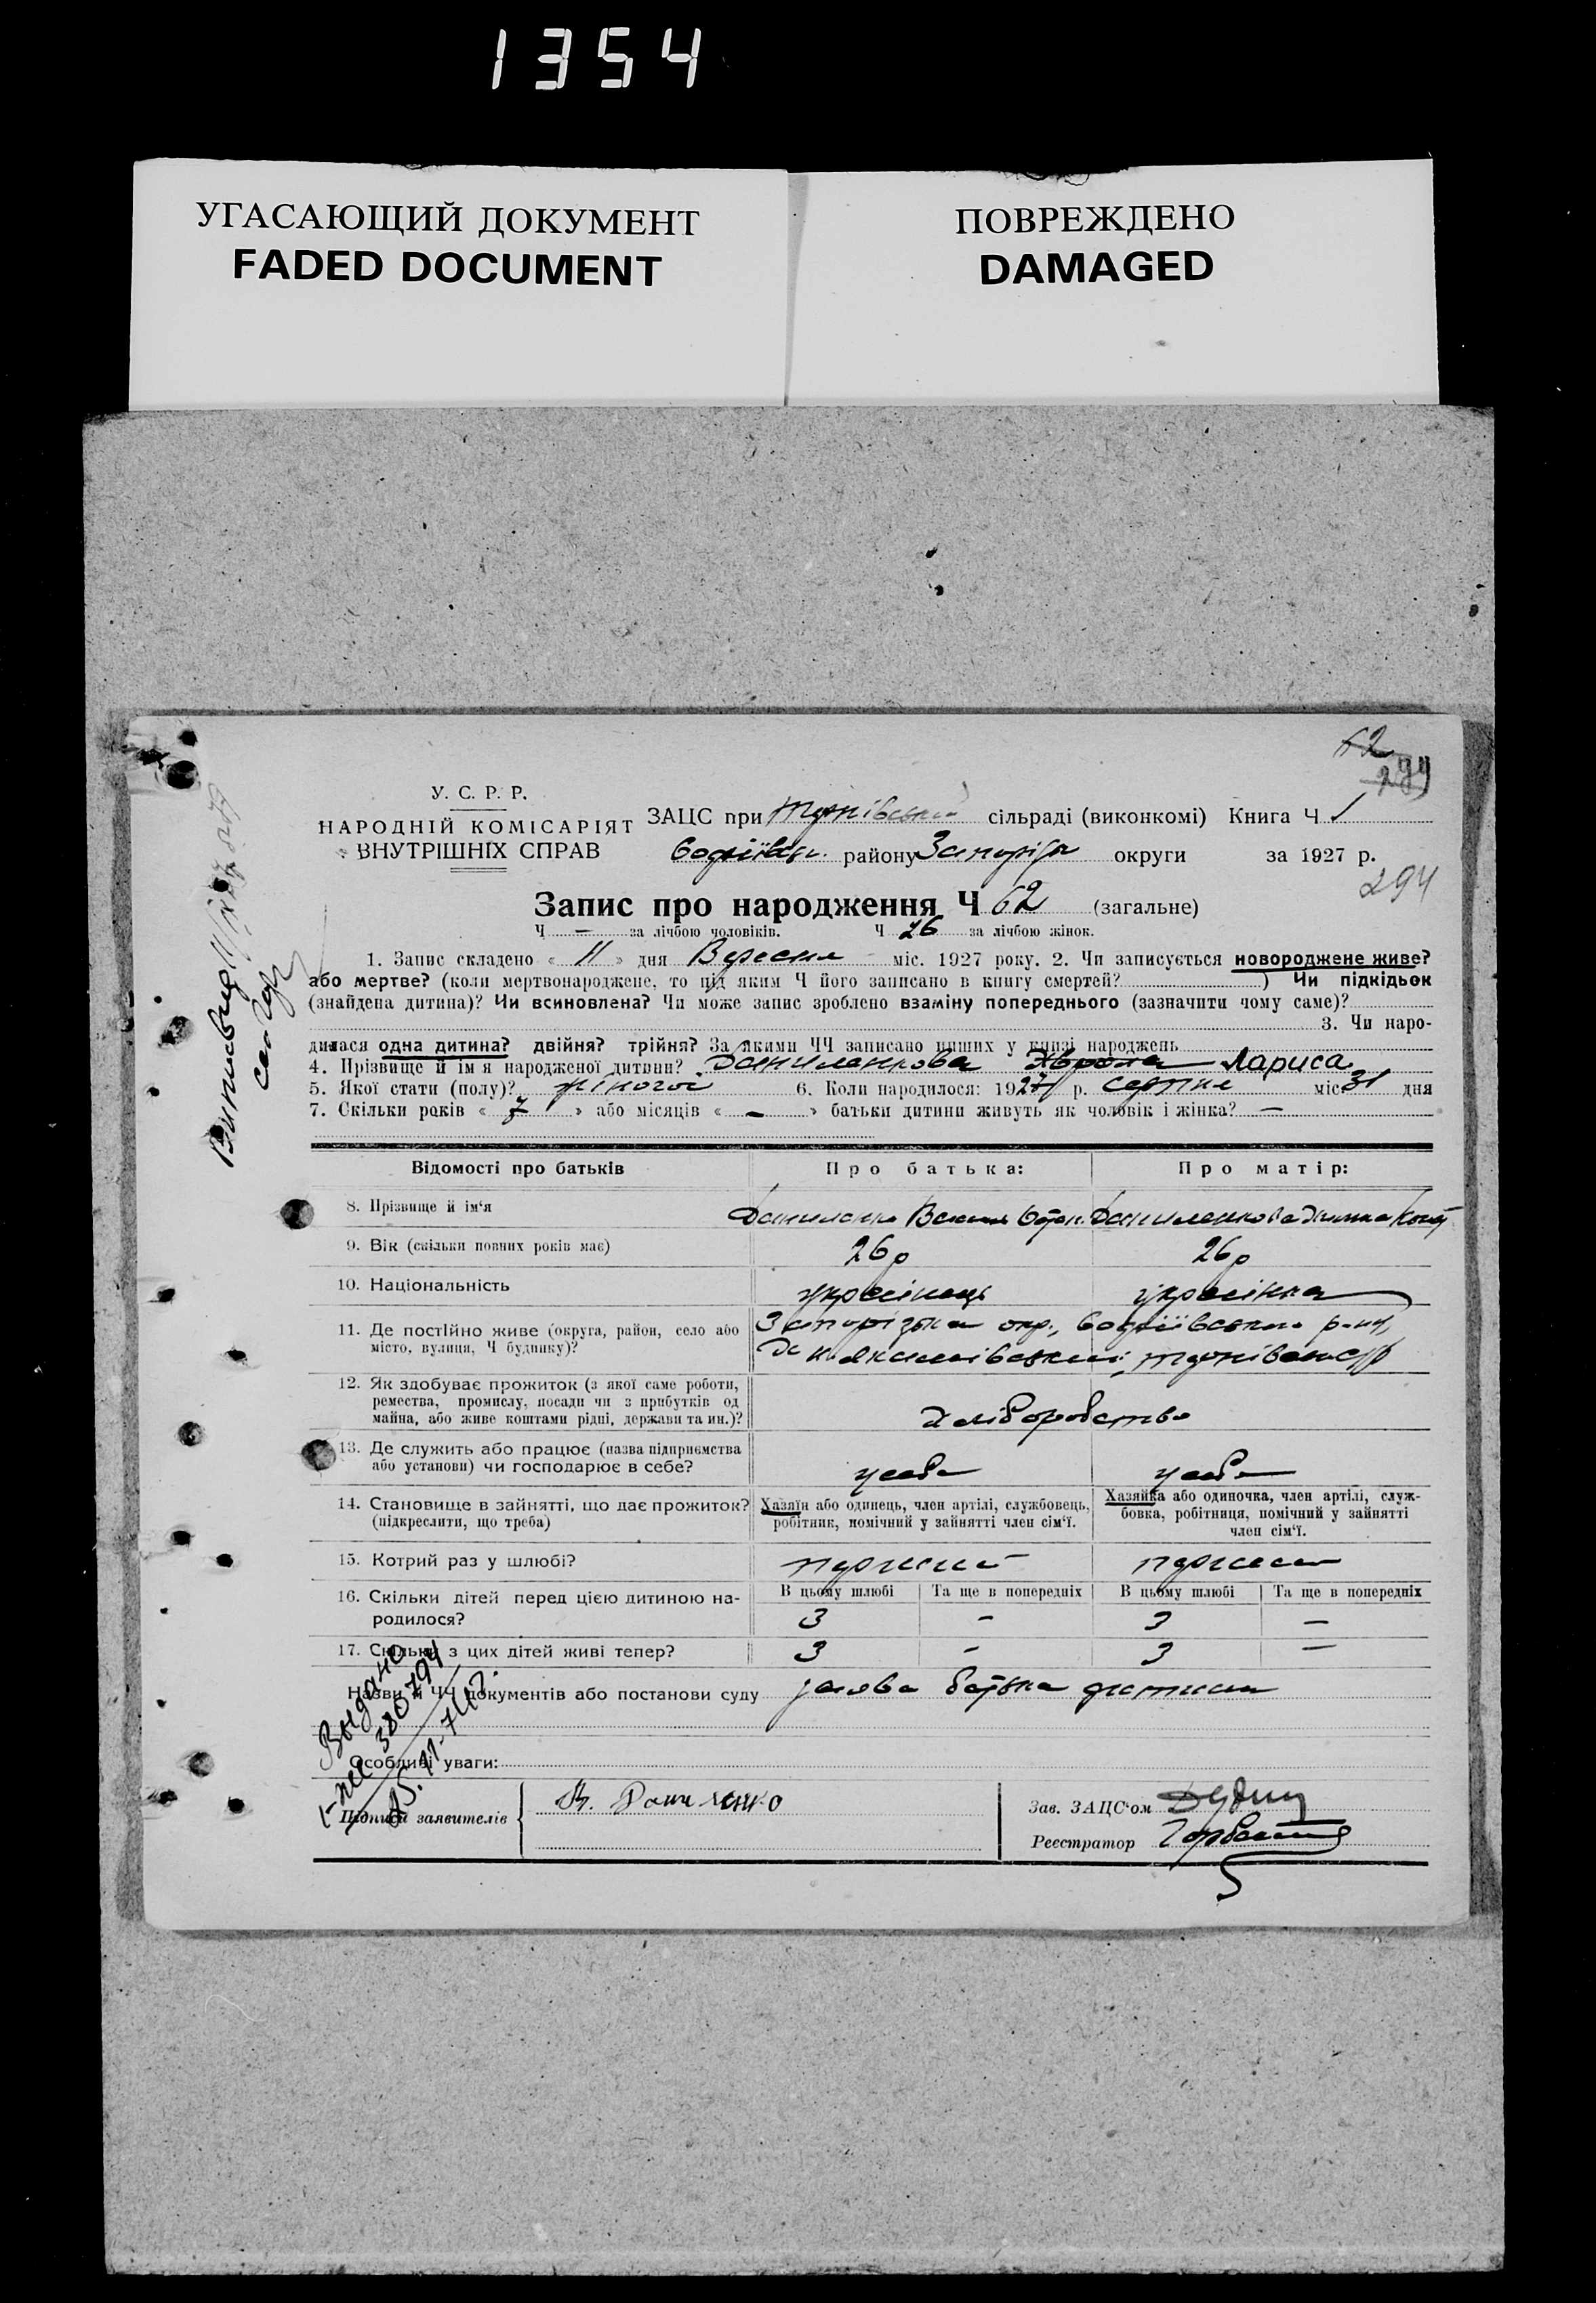 1354
УГАСАЮЩИЙ ДОКУМЕНТ
FADED DOCUMENT
ПОВРЕЖДЕНО
DAMAGED
62
294
У. С. Р. Р.
НАРОДНІЙ КОМІСАРІЯТ
ВНУТРІШНІХ СПРАВ
ЗАЦС при сільраді (виконкомі) Книга Ч 1
району округи за 1927 р.
294
Запис про народження Ч 62 (загальне)
Ч — за лічбою чоловіків. Ч 26 за лічбою жінок.
1. Запис складено « 11 » дня Вересня міс. 1927 року. 2. Чи записується новороджене живе?
або мертве? (коли мертвонароджене, то під яким Ч його записано в книгу смертей? ) Чи підкідьок
(знайдена дитина)? Чи всиновлена? Чи може запис зроблено взаміну попереднього (зазначити чому саме)?
3. Чи наро-
дилася одна дитина? двійня? трійня? За якими ЧЧ записано инших у книзі народжень
4. Прізвище й ім'я народженої дитини? Даниленкова Лариса
5. Якої стати (полу)? жіночої 6. Коли народилося: 1927 р. серпня міс 31 дня
7. Скільки років « 7 » або місяців « – » батьки дитини живуть як чоловік і жінка? —
Відомості про батьків
Про батька:
Про матір:
8. Прізвище й ім'я
Даниленко Василь Даниленкова
9. Вік (скільки повних років має)
26 р
26 р
10. Національність
українець
українка
11. Де постійно живе (округа, район, село або
місто, вулиця, Ч будинку)?
Запорізька окр.,
12. Як здобуває прожиток (з якої саме роботи,
ремества, промислу, посади чи з прибутків од
майна, або живе коштами рідні, держави та ин.)?
Хліборобство
13. Де служить або працює (назва підприємства
або установи) чи господарює в себе?
у себе
у себе
14. Становище в зайнятті, що дає прожиток?
(підкреслити, що треба)
Хазяїн або одинець, член артілі, службовець,
робітник, помічний у зайнятті член сім'ї.
Хазяйка або одиночка, член артілі, служ-
бовка, робітниця, помічний у зайнятті
член сім'ї.
15. Котрий раз у шлюбі?
16. Скільки дітей перед цією дитиною на-
родилося?
В цьому шлюбі Та ще в попередніх В цьому шлюбі Та ще в попередніх
3 – 3 —
17. Скільки з цих дітей живі тепер?
3 – 3 —
Назви й ЧЧ документів або постанови суду заява батька дитини
Особливі уваги:
Підписи заявителів
В. Даниленко
Зав. ЗАЦС'ом
Реєстратор
Выдано